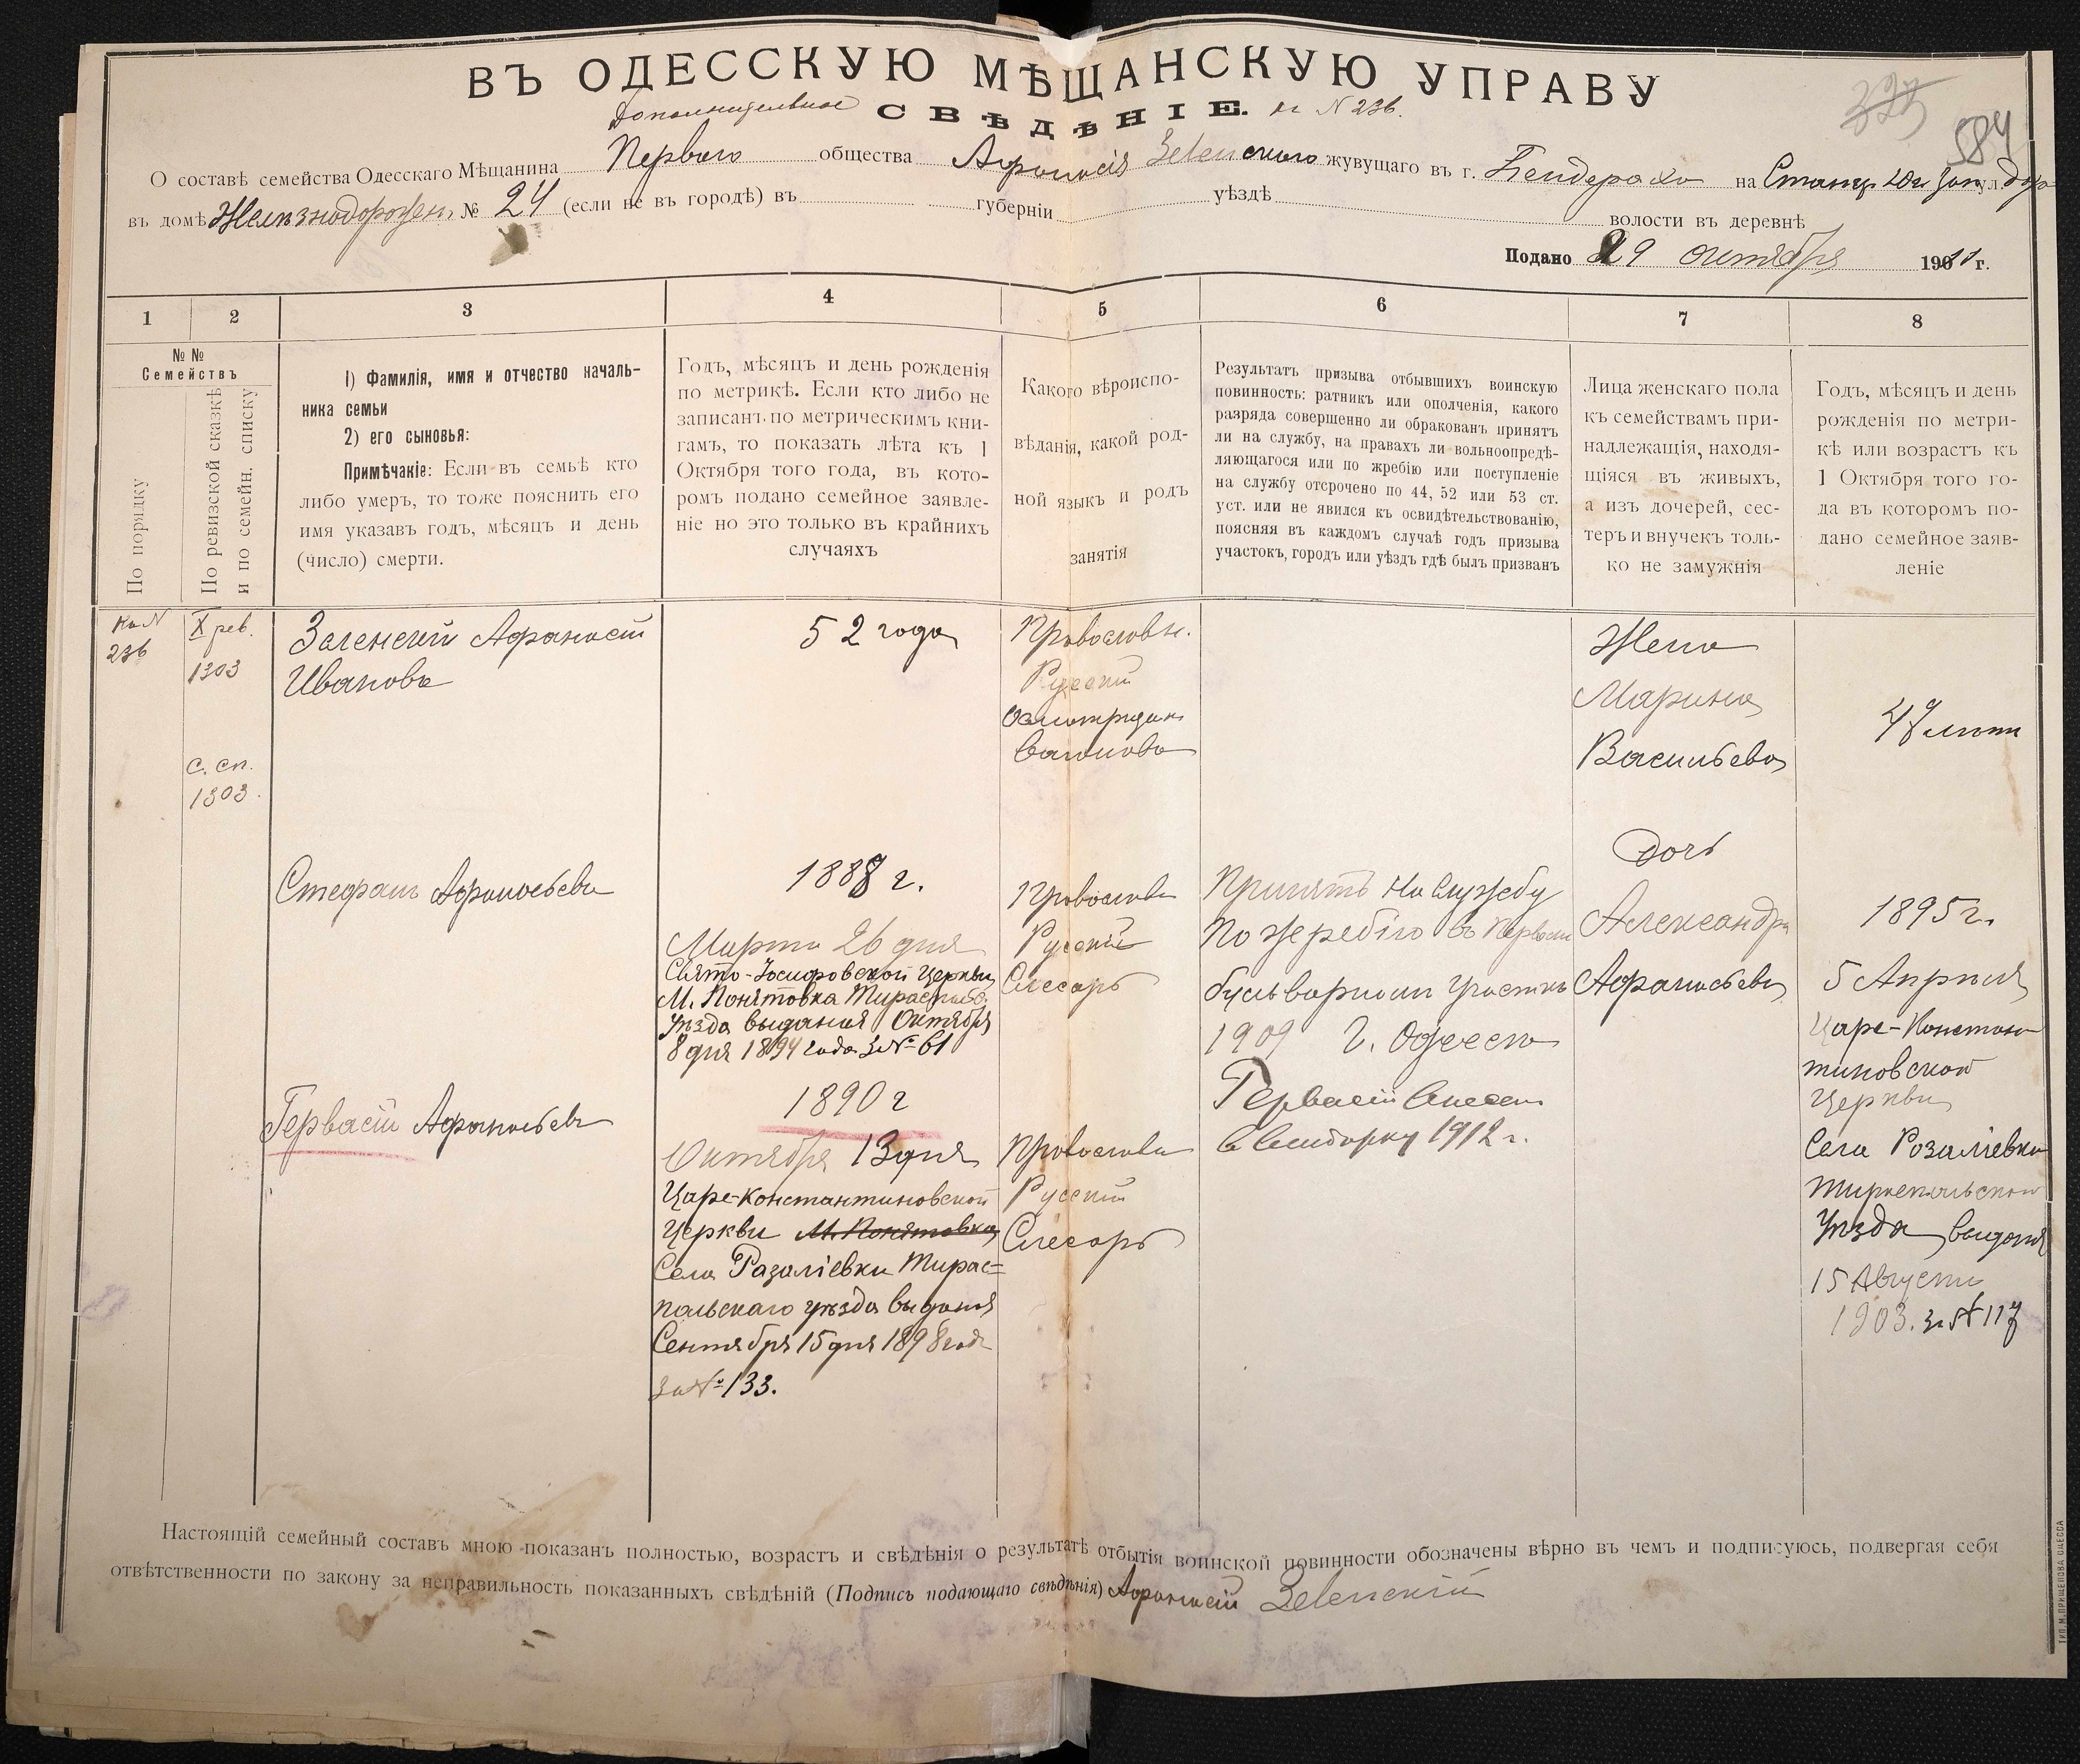 ВЪ ОДЕССКУЮ МѢЩАНСКУЮ УПРАВУ
Дополнительное СВѢДѢНІЕ. къ N 236.
584
О составѣ семейства Одесскаго Мѣщанина Перваго общества Афонасія Зеленского жувущаго въ г. Бендерахъ на Станц. Юг Зап ул. дор
въ домѣ Желѣзнодорожн. № 24 (если не въ городѣ) въ губерніи уѣздѣ волости въ деревнѣ
Подано 29 октября 1911 г.
1 2 3 4 5 6 7 8
№ №
Семействъ
По порядку
По ревизской сказкѣ
и по семейн. списку
1) Фамилія, имя и отчество началь-
ника семьи
2) его сыновья:
Примѣчаніе: Если въ семьѣ кто
либо умеръ, то тоже пояснить его
имя указавъ годъ, мѣсяцъ и день
(число) смерти.
Годъ, мѣсяцъ и день рожденія
по метрикѣ. Если кто либо не
записанъ по метрическимъ кни-
гамъ, то показать лѣта къ 1
Октября того года, въ кото-
ромъ подано семейное заявле-
ніе но это только въ крайнихъ
случаяхъ
Какого вѣроиспо-
вѣданія, какой род-
ной языкъ и родъ
занятія
Результатъ призыва отбывшихъ воинскую
повинность: ратникъ или ополченія, какого
разряда совершенно ли обракованъ принятъ
ли на службу, на правахъ ли вольноопредѣ-
ляющагося или по жребію или поступленіе
на службу отсрочено по 44, 52 или 53 ст.
уст. или не явился къ освидѣтельствованію,
поясняя въ каждомъ случаѣ годъ призыва
участокъ, городъ или уѣздъ гдѣ былъ призванъ
Лица женскаго пола
къ семействамъ при-
надлежащія, находя-
щіяся въ живыхъ,
а изъ дочерей, сес-
теръ и внучекъ толь-
ко не замужнія
Годъ, мѣсяцъ и день
рожденія по метри-
кѣ или возрастъ къ
1 Октября того го-
да въ которомъ по-
дано семейное заяв-
леніе
Ко N
236
X рев.
1303
с. сп.
1303.
Зеленскій Афанасій
Ивановъ
52 года
Православн.
Русскій
Осмотрщик
вагоновъ
Жена
Марина
Васильева
47 лѣтъ
Стефанъ Афанасьевъ
1888 г.
Марта 26 дня
Свято-Іосифовской Церкви
М. Понятовка Тираспольс.
уѣзда выданая Октября
8 дня 1894 года за № 61
Православн
Русскій
Слесарь
Принятъ на службу
по жеребію въ Первом
бульварномъ участкѣ
1909 г. Одесса
Дочь
Александра
Афанасьева
1895 г.
5 Апреля
Царе-Констан
тиновской
Церкви
Села Розаліевки
Тираспольского
Уѣзда, выданая
15 Августа
1903. за № 117
Гервасій Афанасьевъ
1890 г
Октября 13 дня
Царе-Константиновской
Церкви М. Понятовка
Села Разаліевки Тирас=
польскаго уѣзда выданая
Сентября 15 дня 1898 года
за № 133.
Православн
Русскій
Слесарь
Гервасій внесен
в выборку 1912 г.
Настоящій семейный составъ мною показанъ полностью, возрастъ и свѣдѣнія о результатѣ отбытія воинской повинности обозначены вѣрно въ чемъ и подписуюсь, подвергая себя
отвѣтственности по закону за неправильность показанныхъ свѣдѣній (Подпись подающаго свѣдѣнія) Афонасій Зеленскій
ТИП. М. ПРИЩЕПОВА ОДЕССА